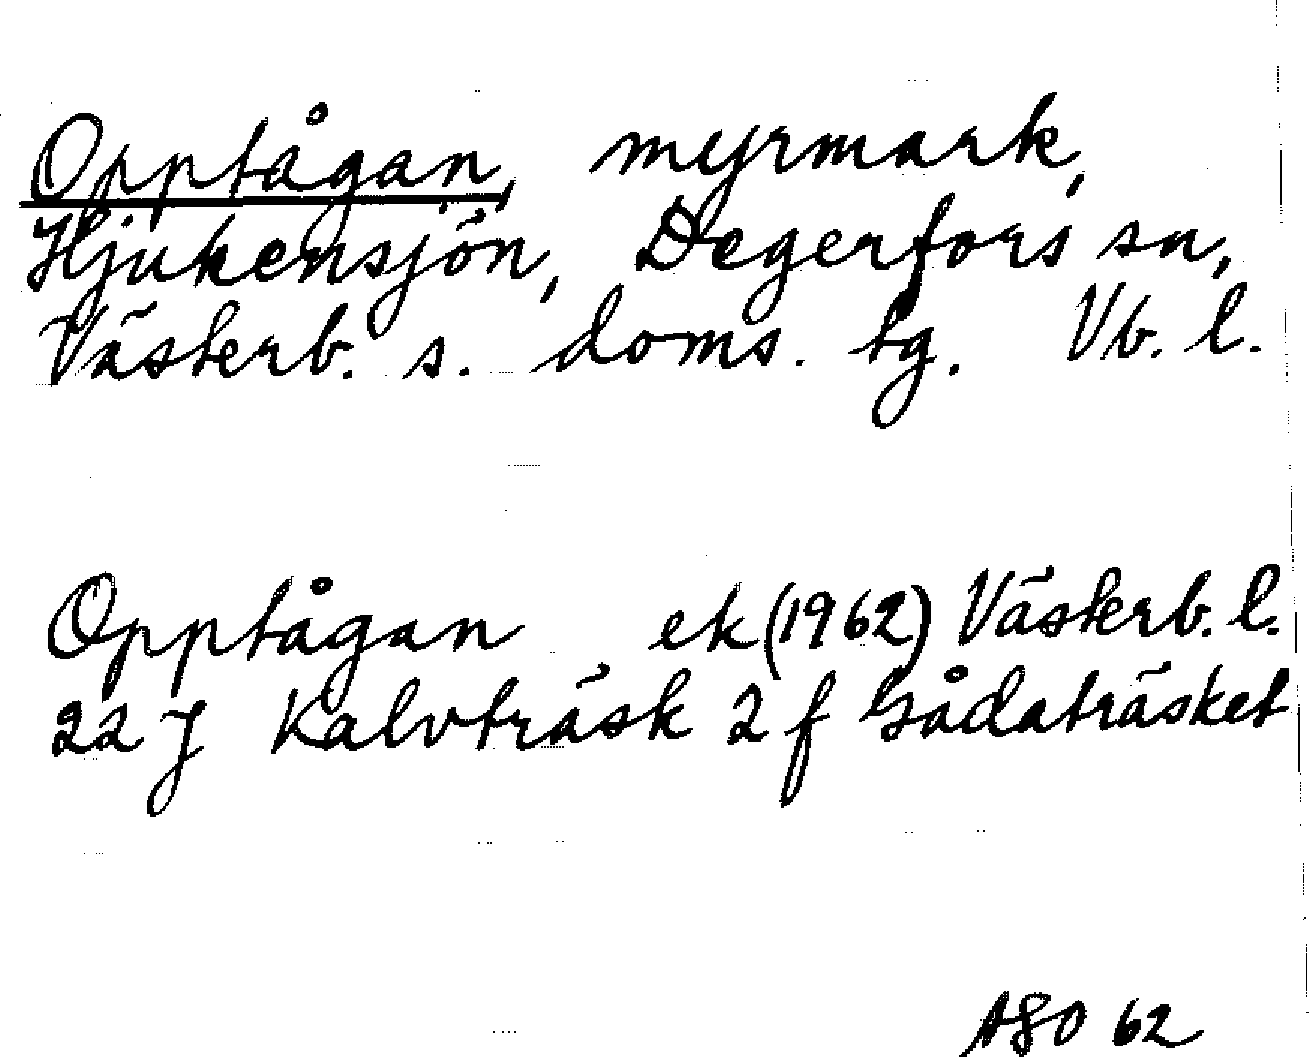 Opptågan, myrmark,
Hjukensjön, Degerfors sn,
Västerb. s. doms. tg. Vb. l.
Opptågan ek (1962) Västerb. l.
22 J Kalvträsk 2 f Gådaträsket
62